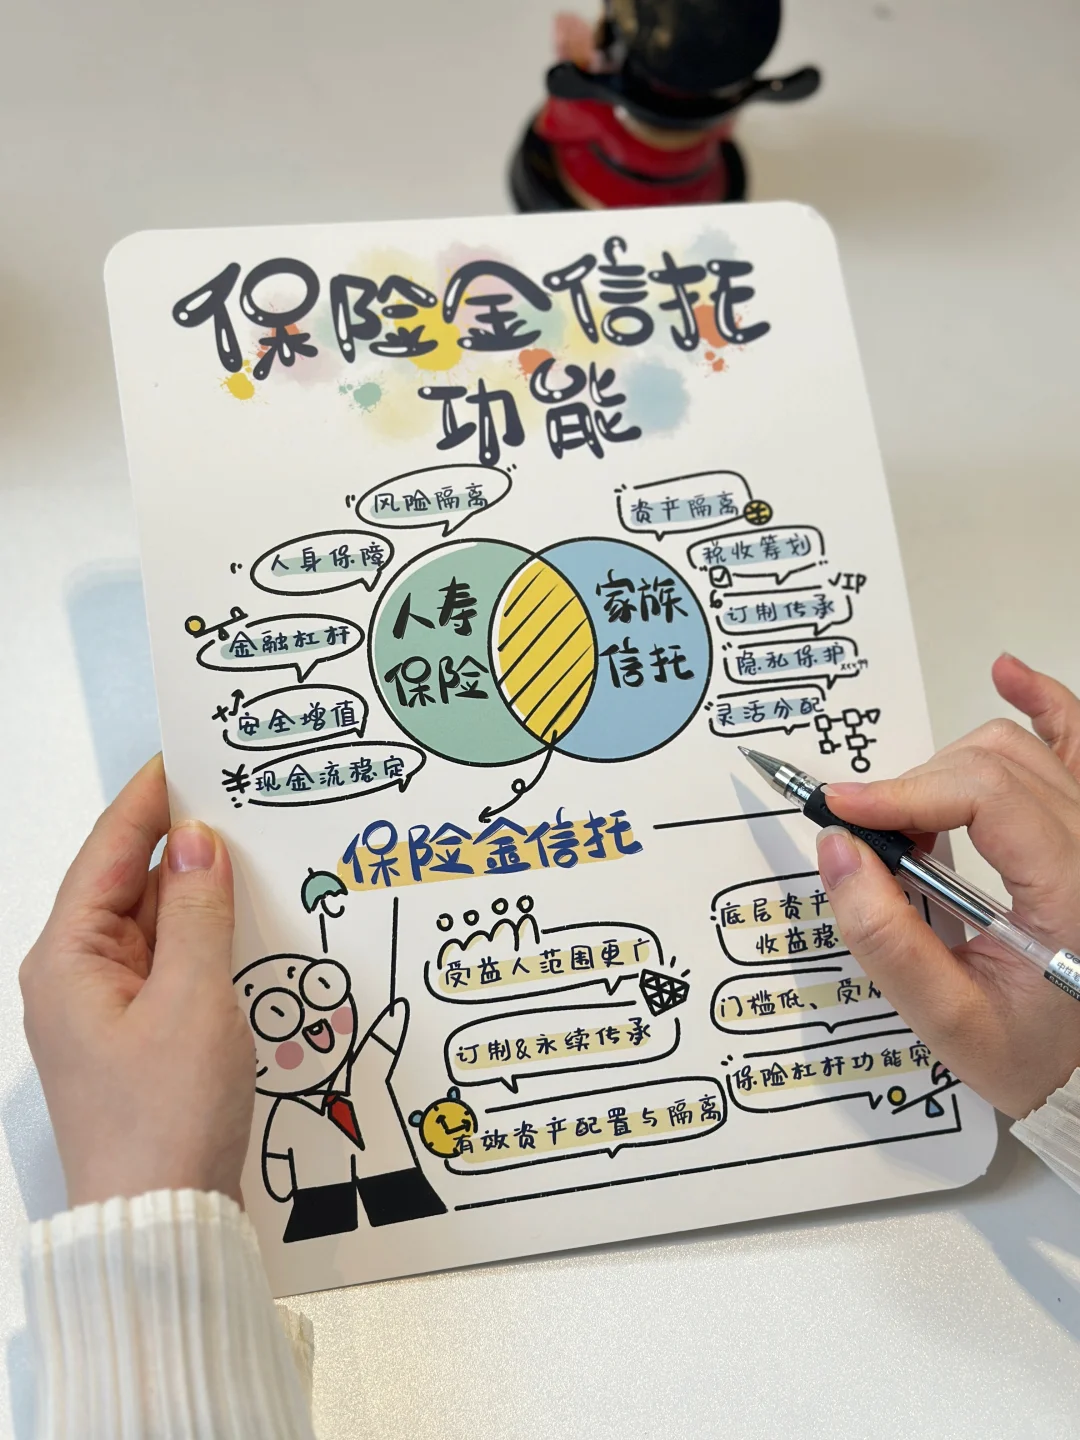 保险金信托
功能
风险隔离
人身保障
金融杠杆
安全增值
现金流稳定
人寿
保险
家族
信托
资产隔离
税收筹划
VIP
订制传承
隐私保护
灵活分配
保险金信托
受益人范围更广
订制&永续传承
有效资产配置与隔离
底层资产
收益稳
门槛低、受
保险杠杆功能突
中性笔